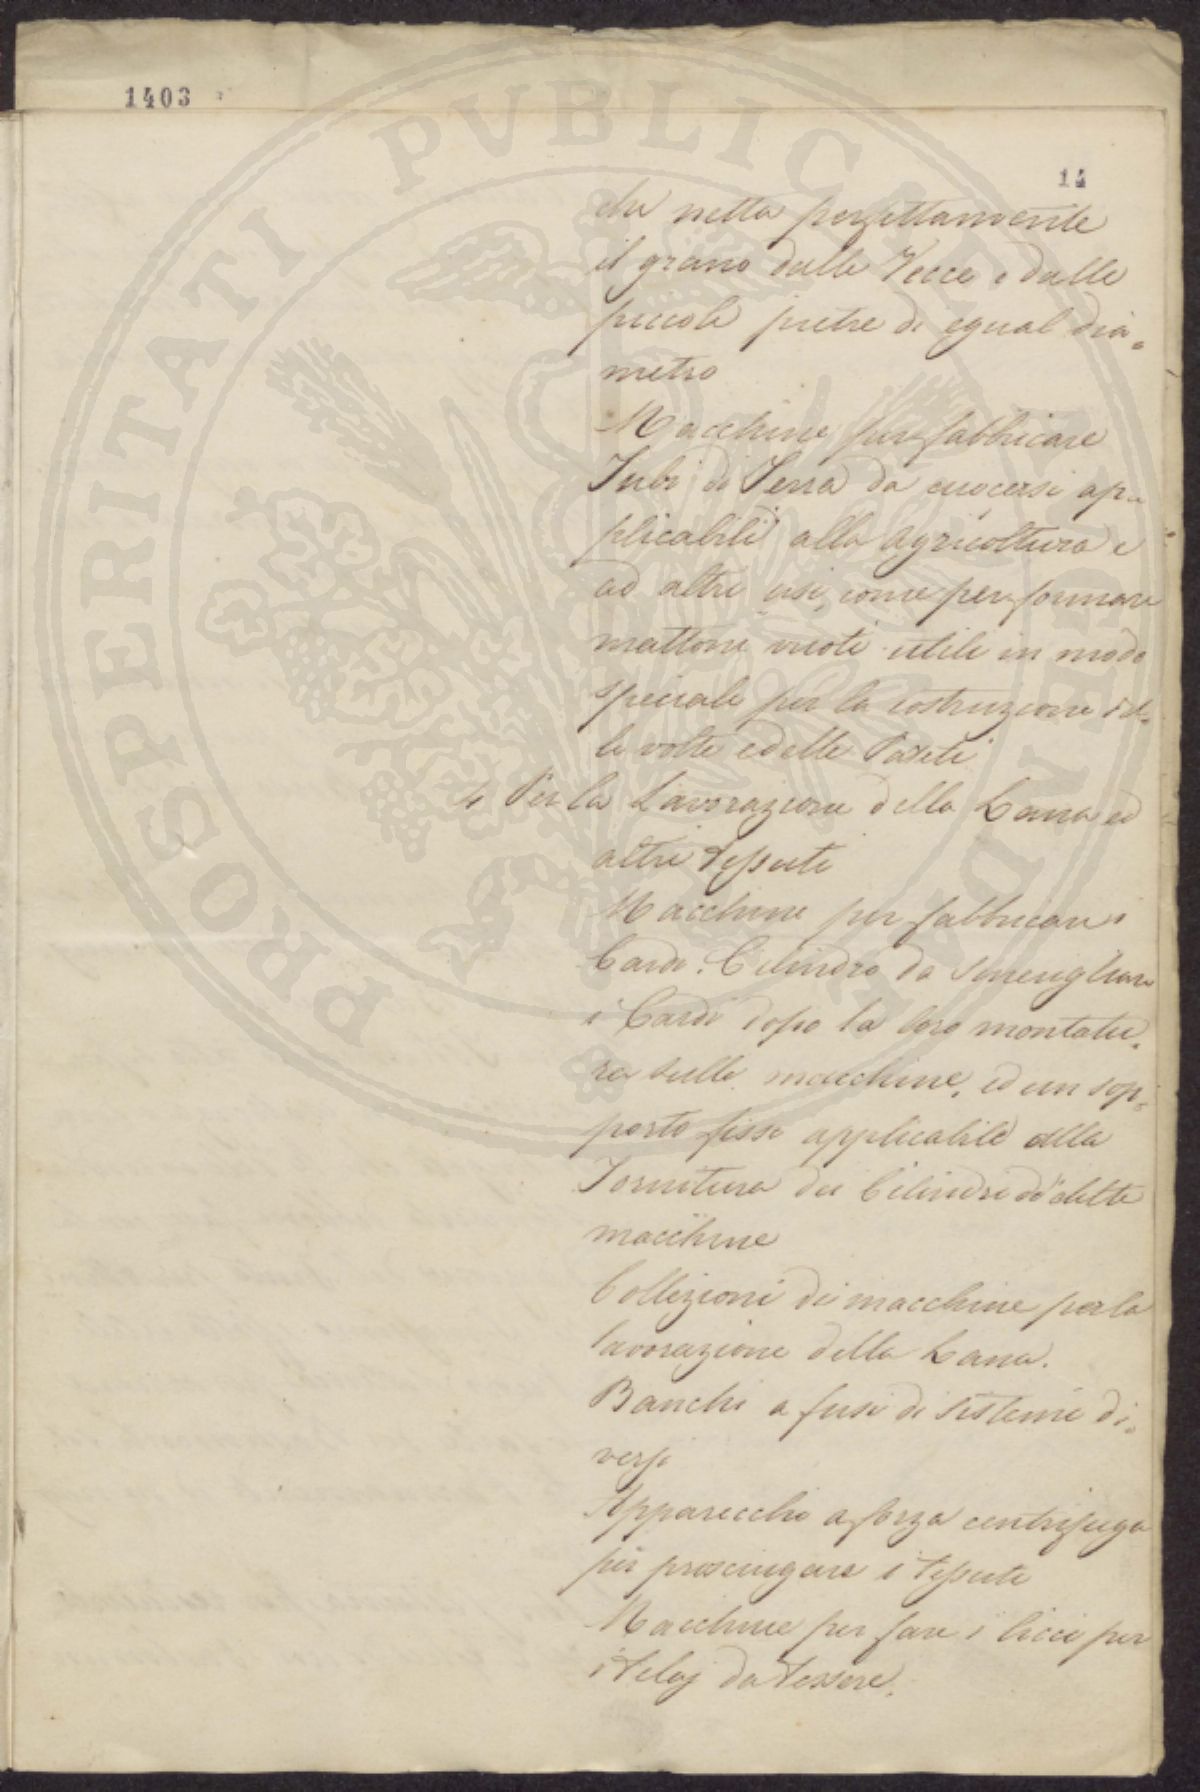 1403
14
che netta perfettamente
il grano dalle Vecce e dalle
piccole pietre di egual dia=
metro
Macchine per fabbricare
Tubi di Terra da cuocersi ap=
plicabili alla agricoltura e
ad altri usi, come per formare
mattoni vuoti utili in modo
speciale per la costruzione del=
le volte e delle Pareti
Per la Lavorazione della Lana ed
altri Tessuti
Macchine per fabbricare i
Cardi. Cilindro da smerigliare
i Cardi dopo la loro montatu=
ra sulle macchine, ed un sop=
porto fisso applicabile alla
Tornitura dei Cilindri di dette
macchine
Collezioni di macchine per la
lavorazione della Lana.
Banchi a fusi di sistemi di=
versi
Apparecchio a forza centrifuga
per prosciugare i tessuti
Macchine per fare i licci per
i telaj da tessere.
PROSPERITATI PVBLICAE AVGENDAE